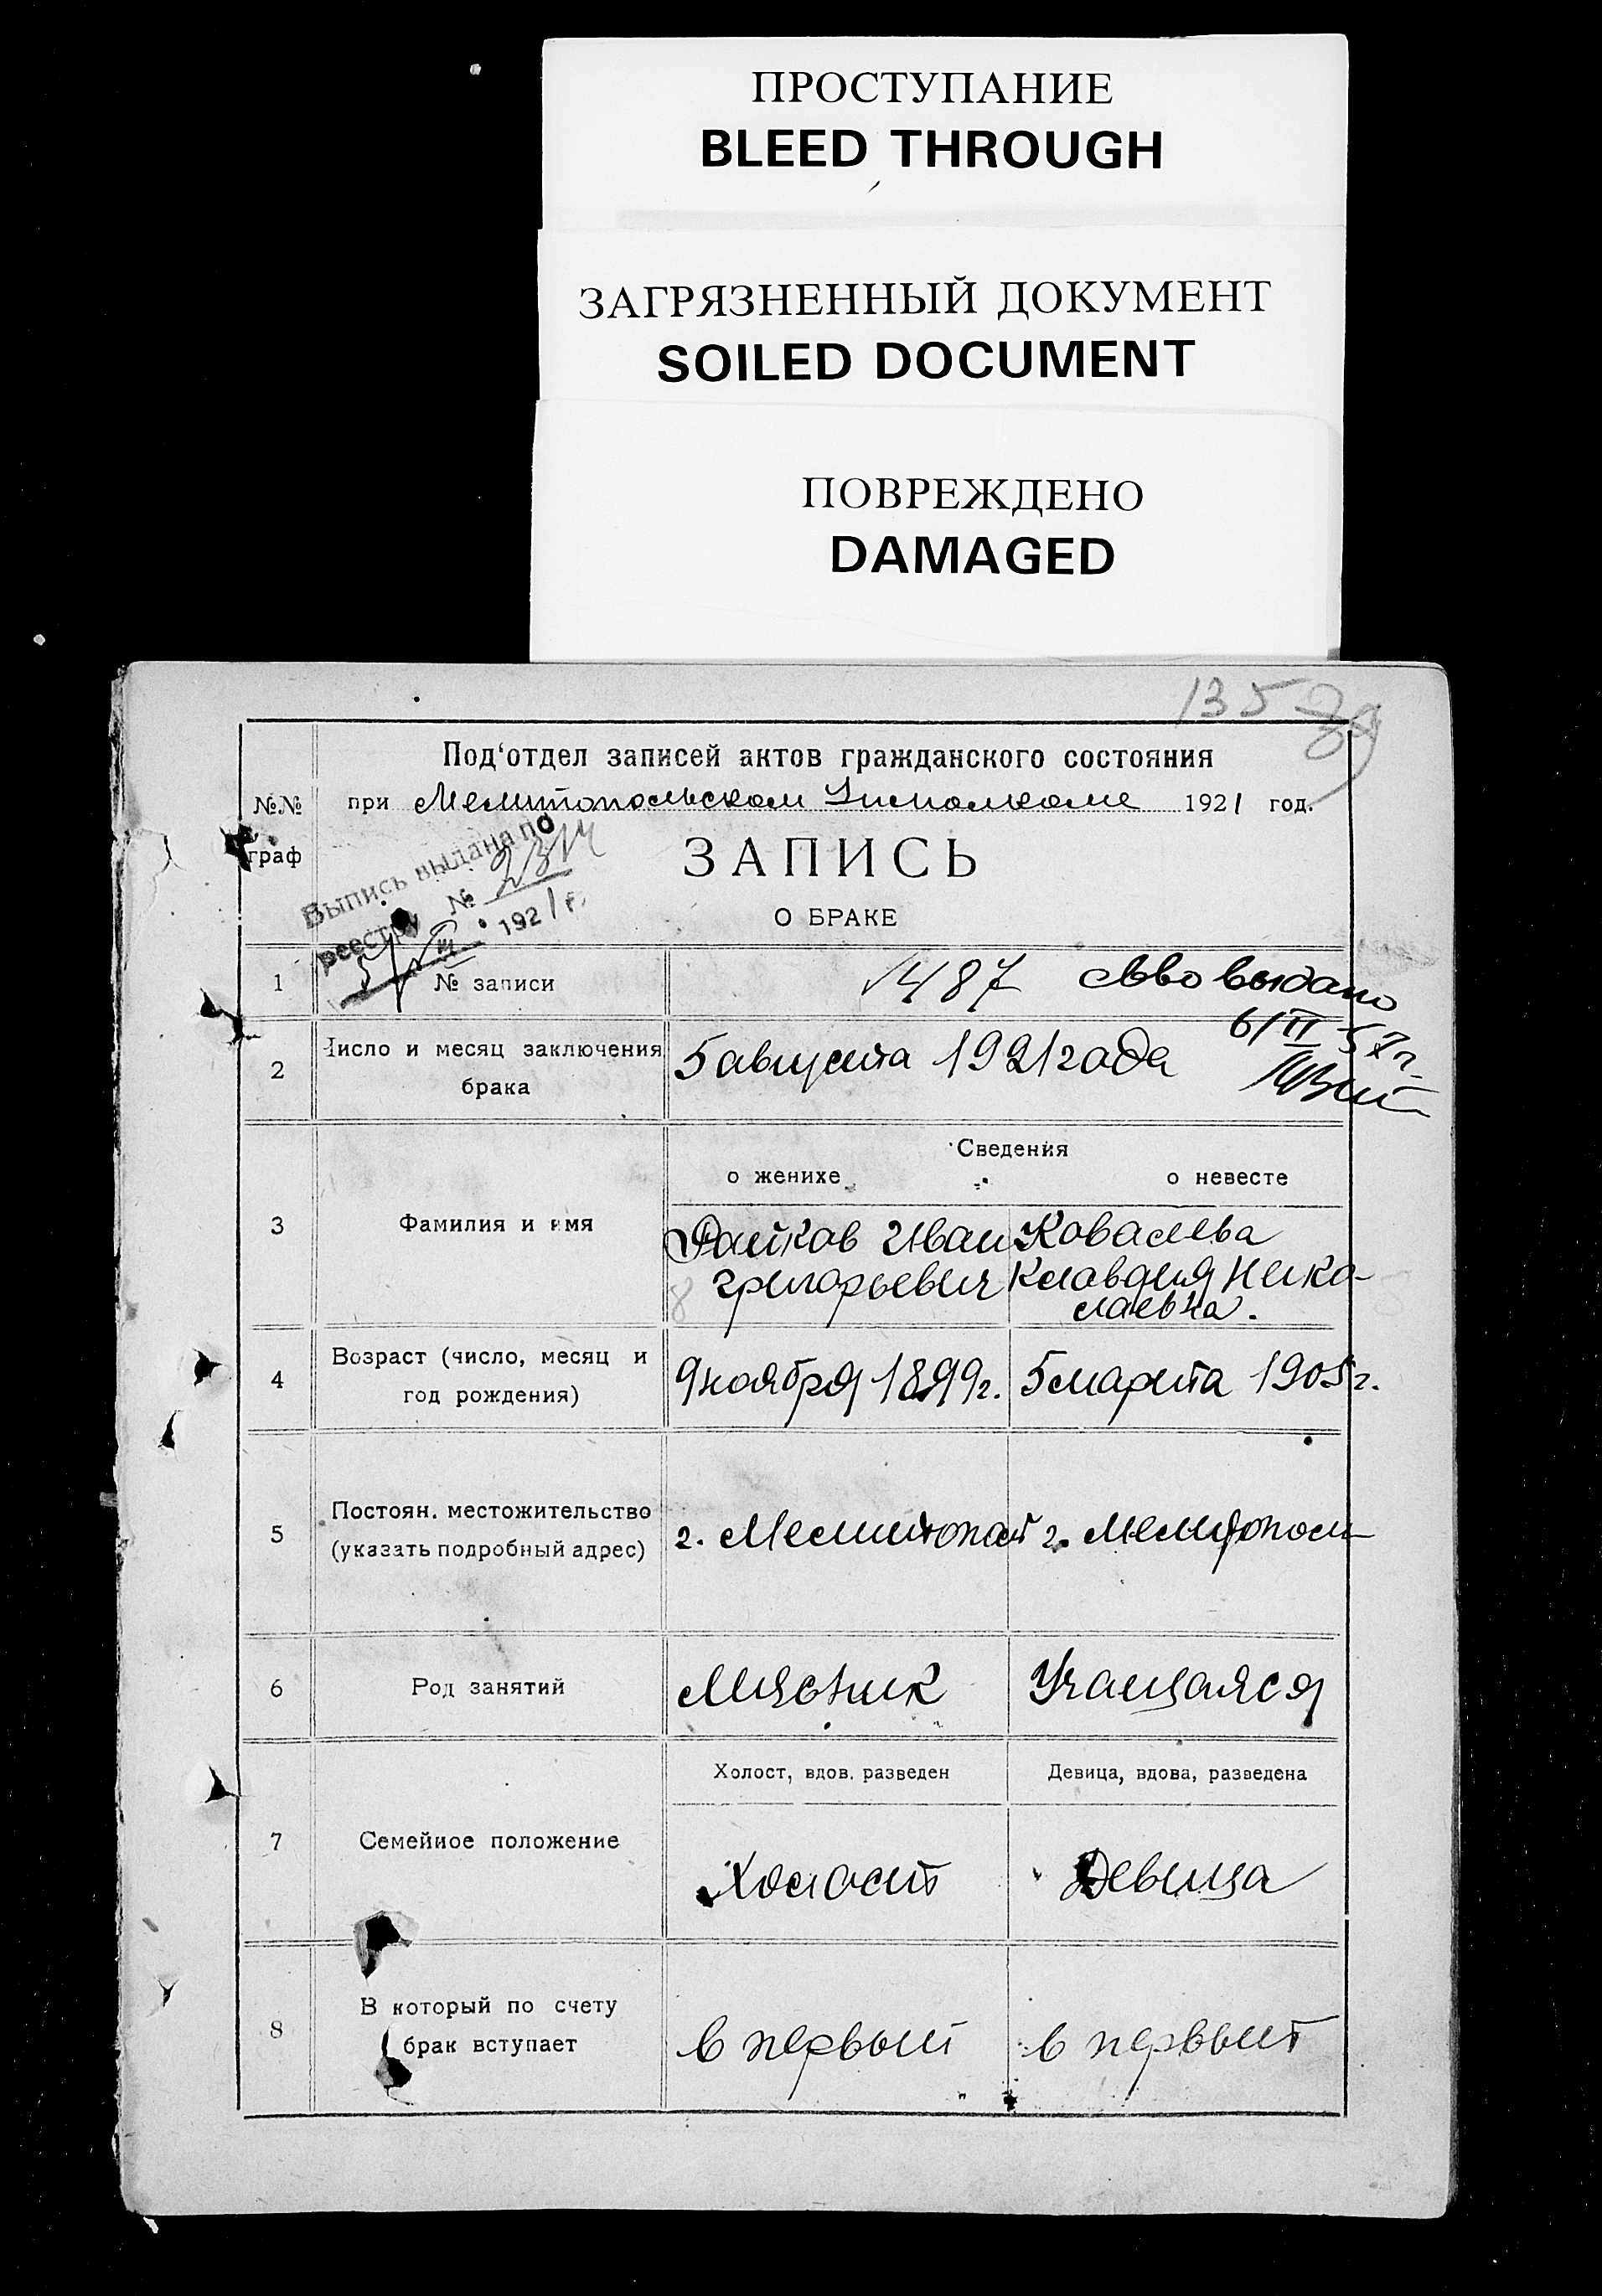 ПРОСТУПАНИЕ
BLEED THROUGH
ЗАГРЯЗНЕННЫЙ ДОКУМЕНТ
SOILED DOCUMENT
ПОВРЕЖДЕНО
DAMAGED
135 89
Под‘отдел записей актов гражданского состояния
№№ граф
при Мелитопольском Исполкоме 1921 год.
ЗАПИСЬ
О БРАКЕ
Выпись выдана по
реестру № 2314
5/VIII 1921 г.
1 № записи 1487
Св-во выдано
6/II 52г.
2 Число и месяц заключения
брака
5 августа 1921 года
Сведения
о женихе о невесте
3 Фамилия и имя
Иван Ковалева
Григорьевич Клавдия Нико-
лаевна.
4 Возраст (число, месяц и
год рождения)
9 ноября 1899г. 5 марта 1905г.
5 Постоян. местожительство
(указать подробный адрес)
г. Мелитополь г. Мелитополь
6 Род занятий Мясник Учащаяся
Холост, вдов. разведен Девица, вдова, разведена
7 Семейное положение
Холост Девица
8 В который по счету
брак вступает
в первый в первый